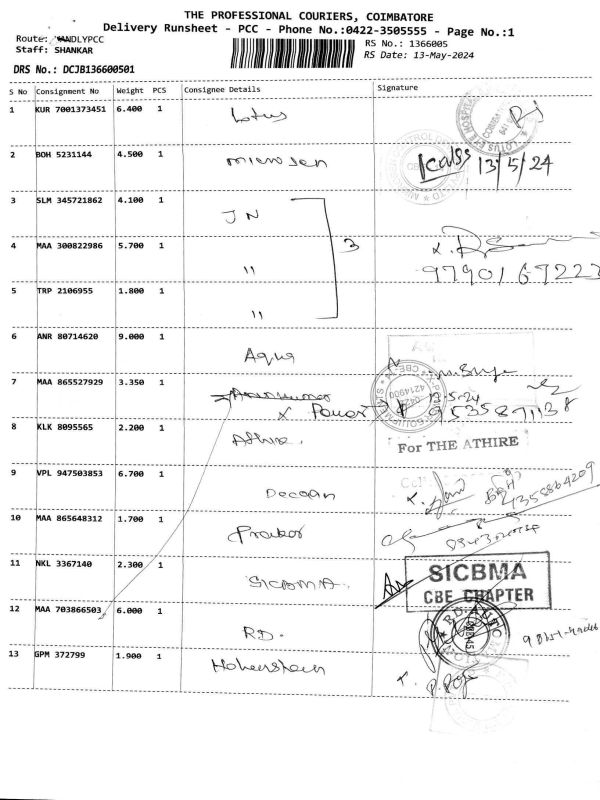 THE PROFESSIONAL COURIERS, COIMBATORE
Delivery Runsheet - PCC - Phone No.:0422-3505555 - Page No.:1
Route: ANDLYPCC
RS No.: 1366005
Staff: SHANKAR
RS Date: 13-May-2024
DRS No.: DCJB136600501
S No Consignment No Weight PCS Consignee Details Signature
1 KUR 7001373451 6.400 1 Lotus
2 BOH 5231144 4.500 1 13/5/24
3 SLM 345721862 4.100 1 JN
3
4 MAA 300822986 5.700 1 "
5 TRP 2106955 1.800 1 "
6 ANR 80714620 9.000 1 Aqua
7 MAA 865527929 3.350 1 13-5-24
8 KLK 8095565 2.200 1 Athire. For THE ATHIRE
9 VPL 947503853 6.700 1 Deccan
10 MAA 865648312 1.700 1
11 NKL 3367140 2.300 1 SICBMA SICBMA
CBE CHAPTER
12 MAA 703866503 6.000 1 RD.
13 GPM 372799 1.900 1 Hohenstein